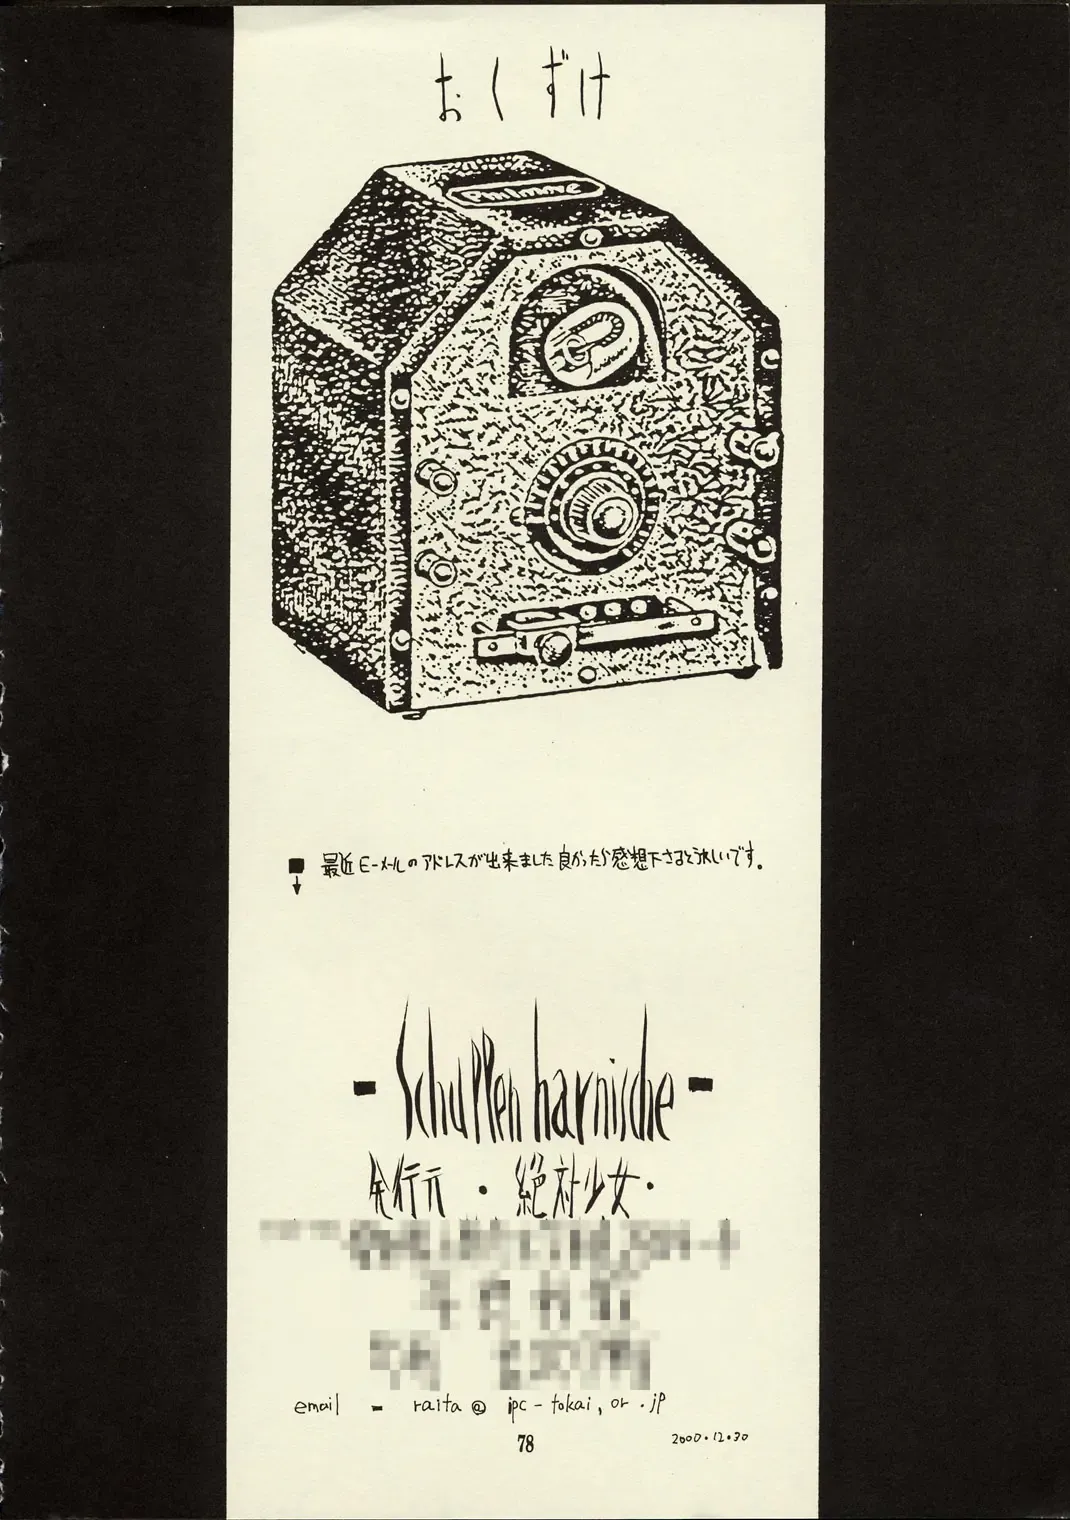 おくずけ
■ 最近E-メールのアドレスが出来ました良かったら感想下さるとうれしいです。
↓
- Schuppen harnische -
発行元・絶対少女・
email - raita@ipc-tokai,or.jp
78
2000.12.30